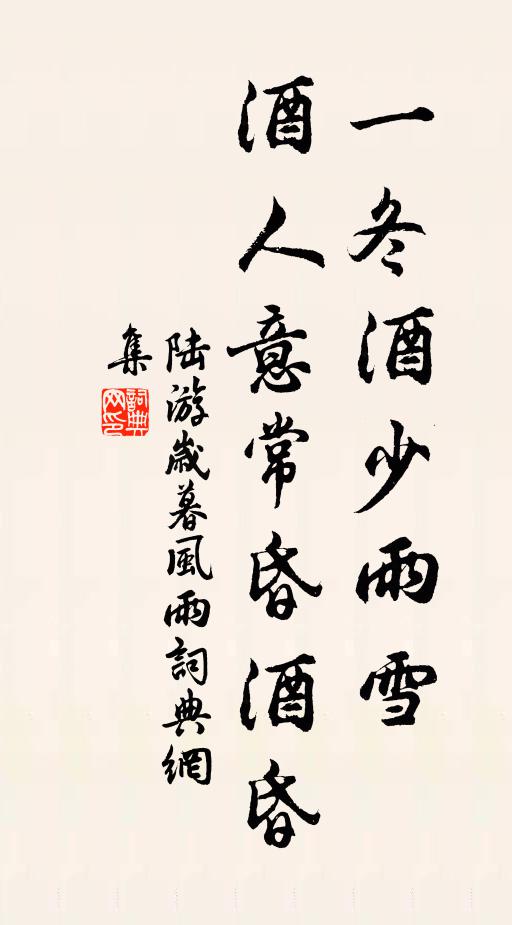 一冬酒少雨雪
酒人意常昏酒昏
陆游歲暮風雨詞典網
集
詞典
网印